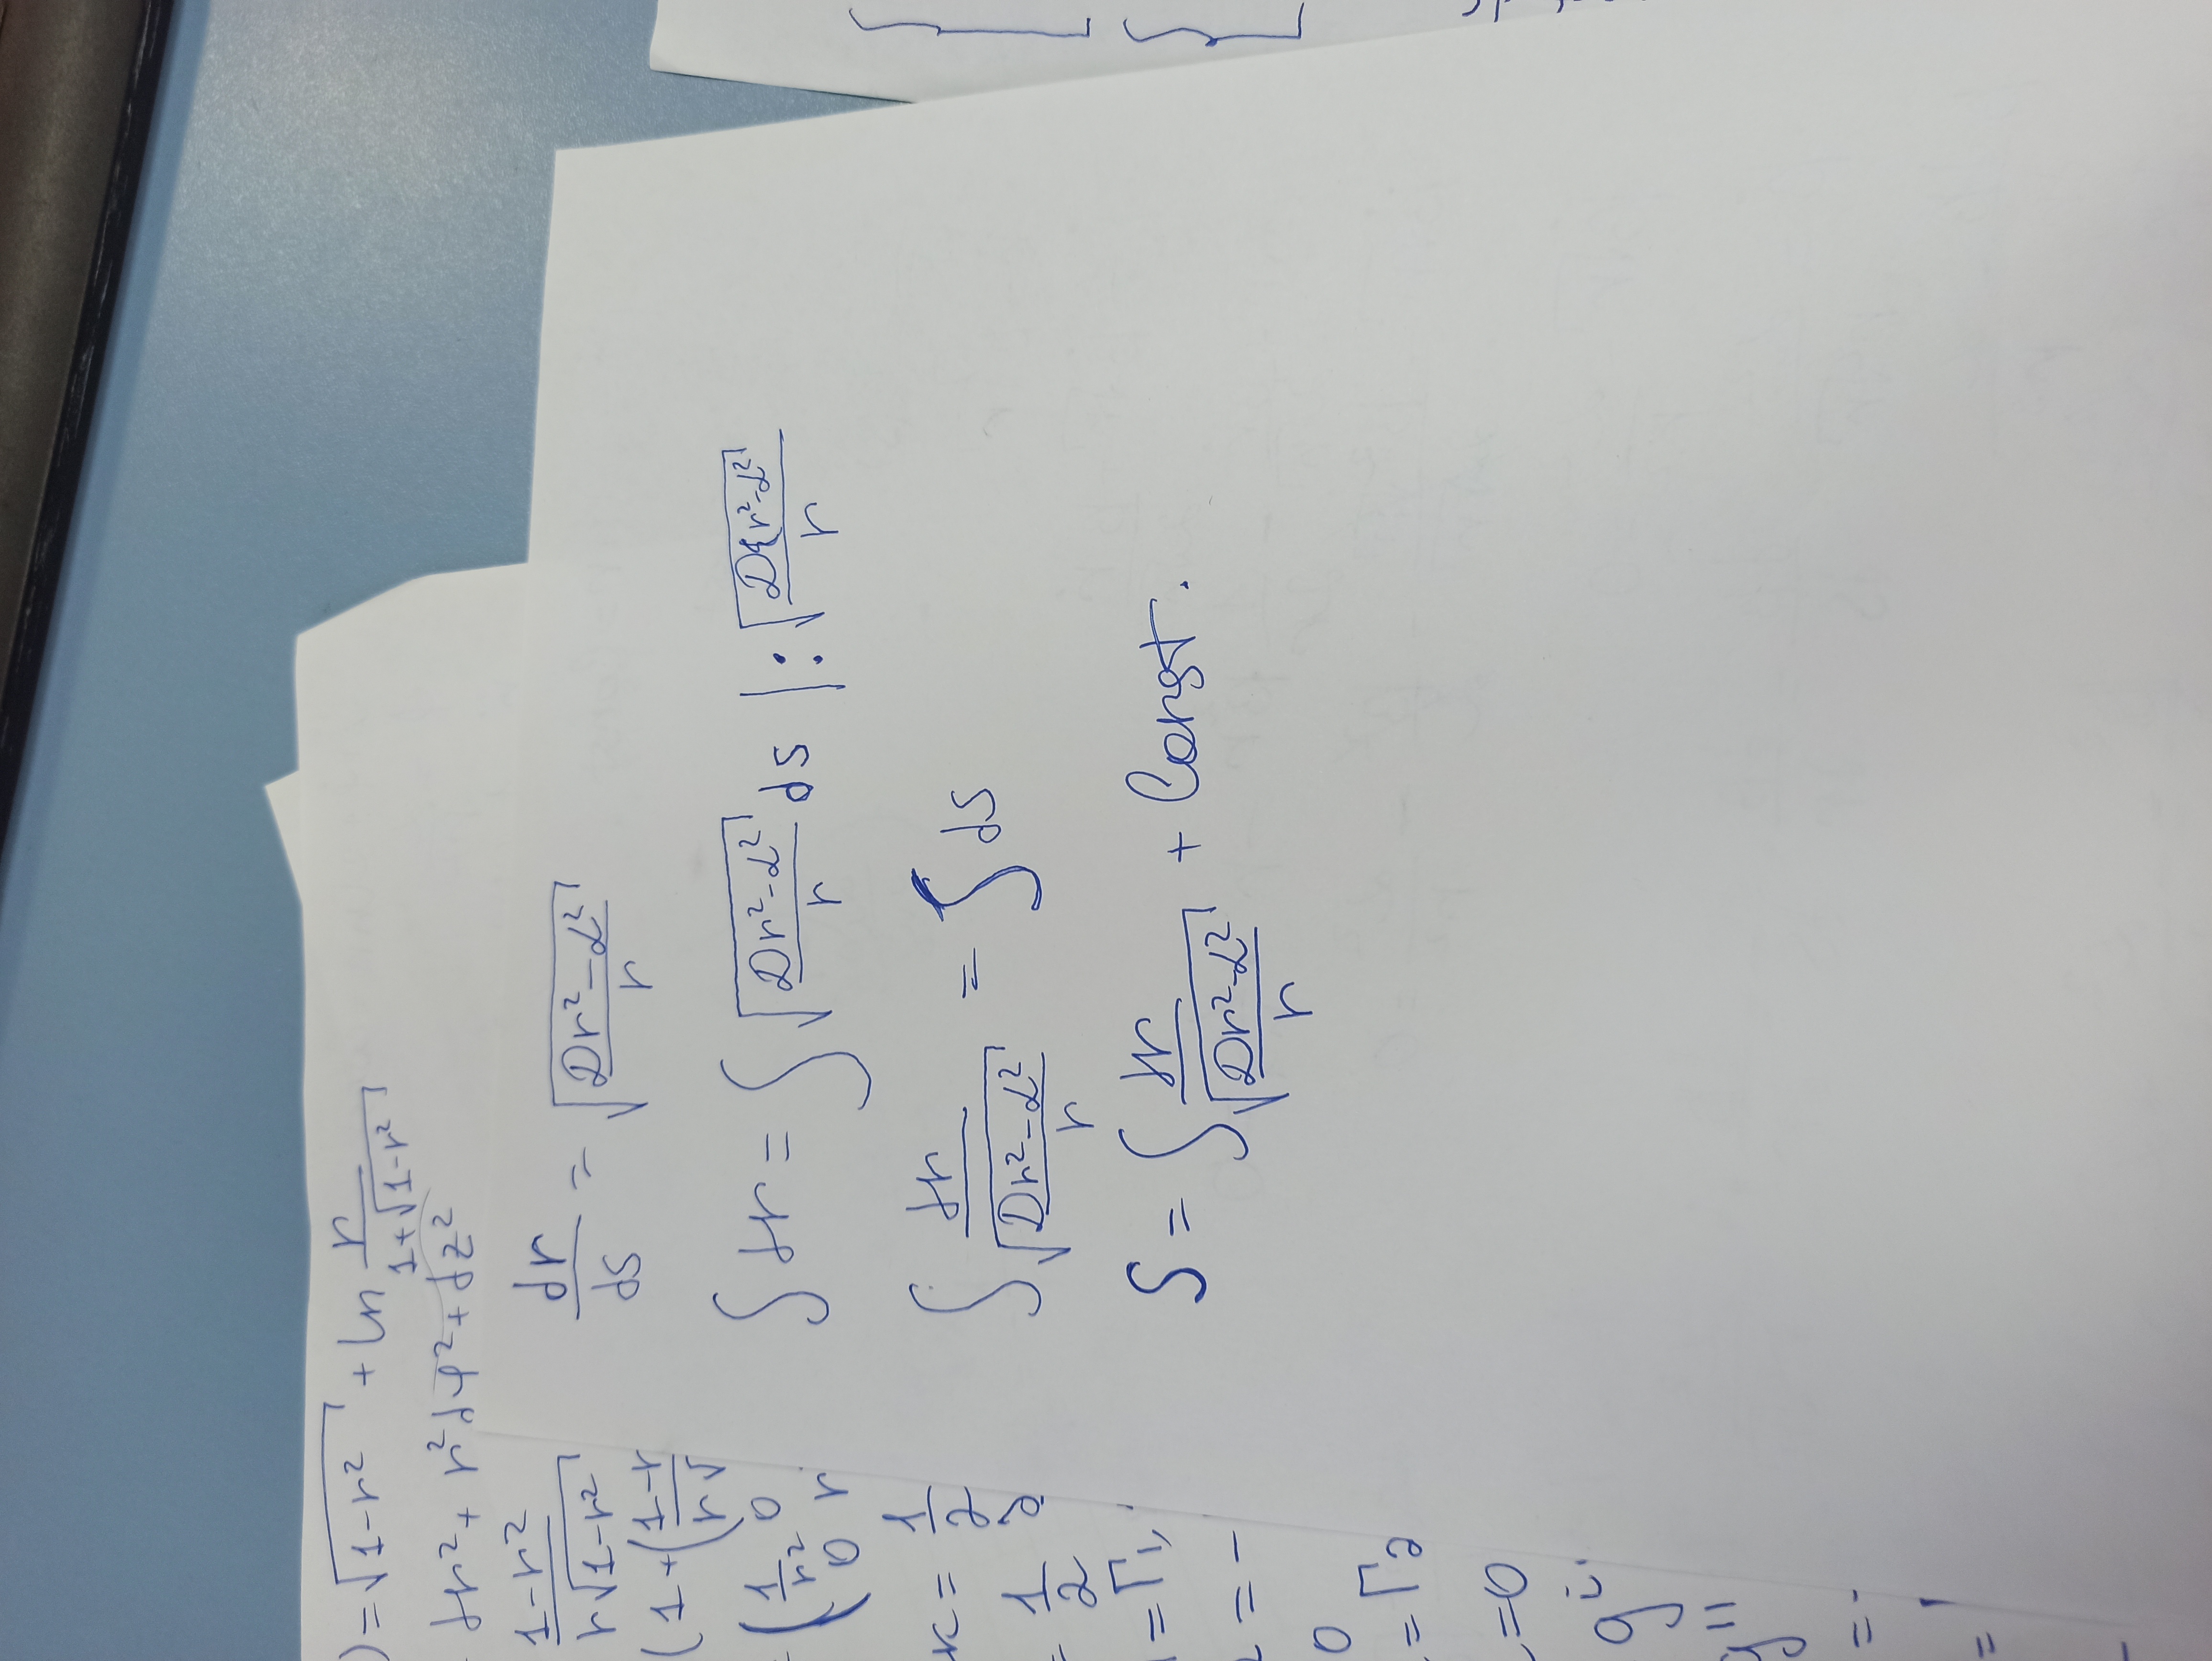 ) = √(1-r²) + ln r/(1+√(1-r²))
dr² + r²dφ² + dz²
(1-r²)/(r√(1-r²))
(1+((1-r
r√
(1/r² 0
0 r
к = 1/2
= 1/2 ∂
= Γ1,
= -
0
= Γ2
=0
gi
g11
= -
=
dr/ds = √((Dr²-L²)/r)
∫dr = ∫√((Dr²-L²)/r) ds | : √((Dr²-L²)/r)
∫ dr/√((Dr²-L²)/r) = ∫ds
S = ∫ dr/√((Dr²-L²)/r) + Const.